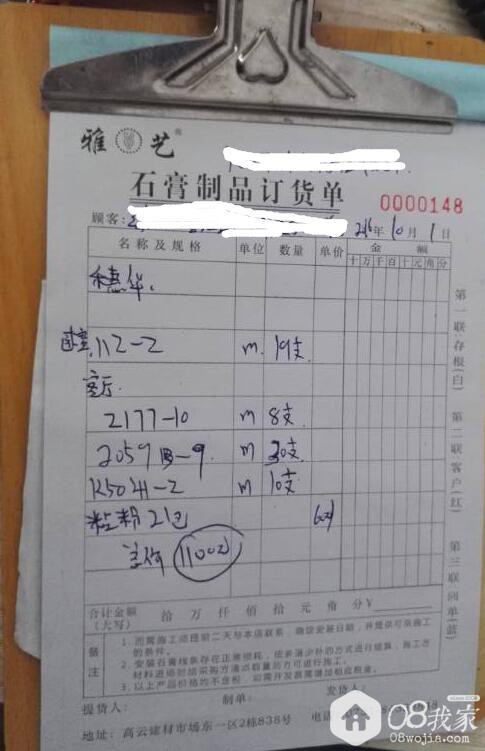 雅艺®
石膏制品订货单
0000148
顾客: 2016年10月1日
名称及规格 单位 数量 单价 金额
十万千百十元角分
112-2 m 19支
客厅
2177-10 m 8支
2059B-9 m 30支
K5041-2 m 10支
粘粉2包 60元
总价 1100元
合计金额(大写) 拾 万 仟 佰 拾 元 角 分 ¥
备注
1. 而需施工须提前二天与本店联系,确定安装日期,并提供可供施工的条件。
2. 安装石膏线条存在正常损耗,依多退少补的方式进行结算,施工方材料进场时结采购方清点数量后方可进行施工。
3. 以上产品价格均不含税,如需开发票需增加相应税金。
提货人: 制单: 发货人:
地址: 高云建材市场东一区2栋838号 电话
第一联:存根(白) 第二联:客户(红) 第三联:回单(蓝)
08我家
08wojia.com